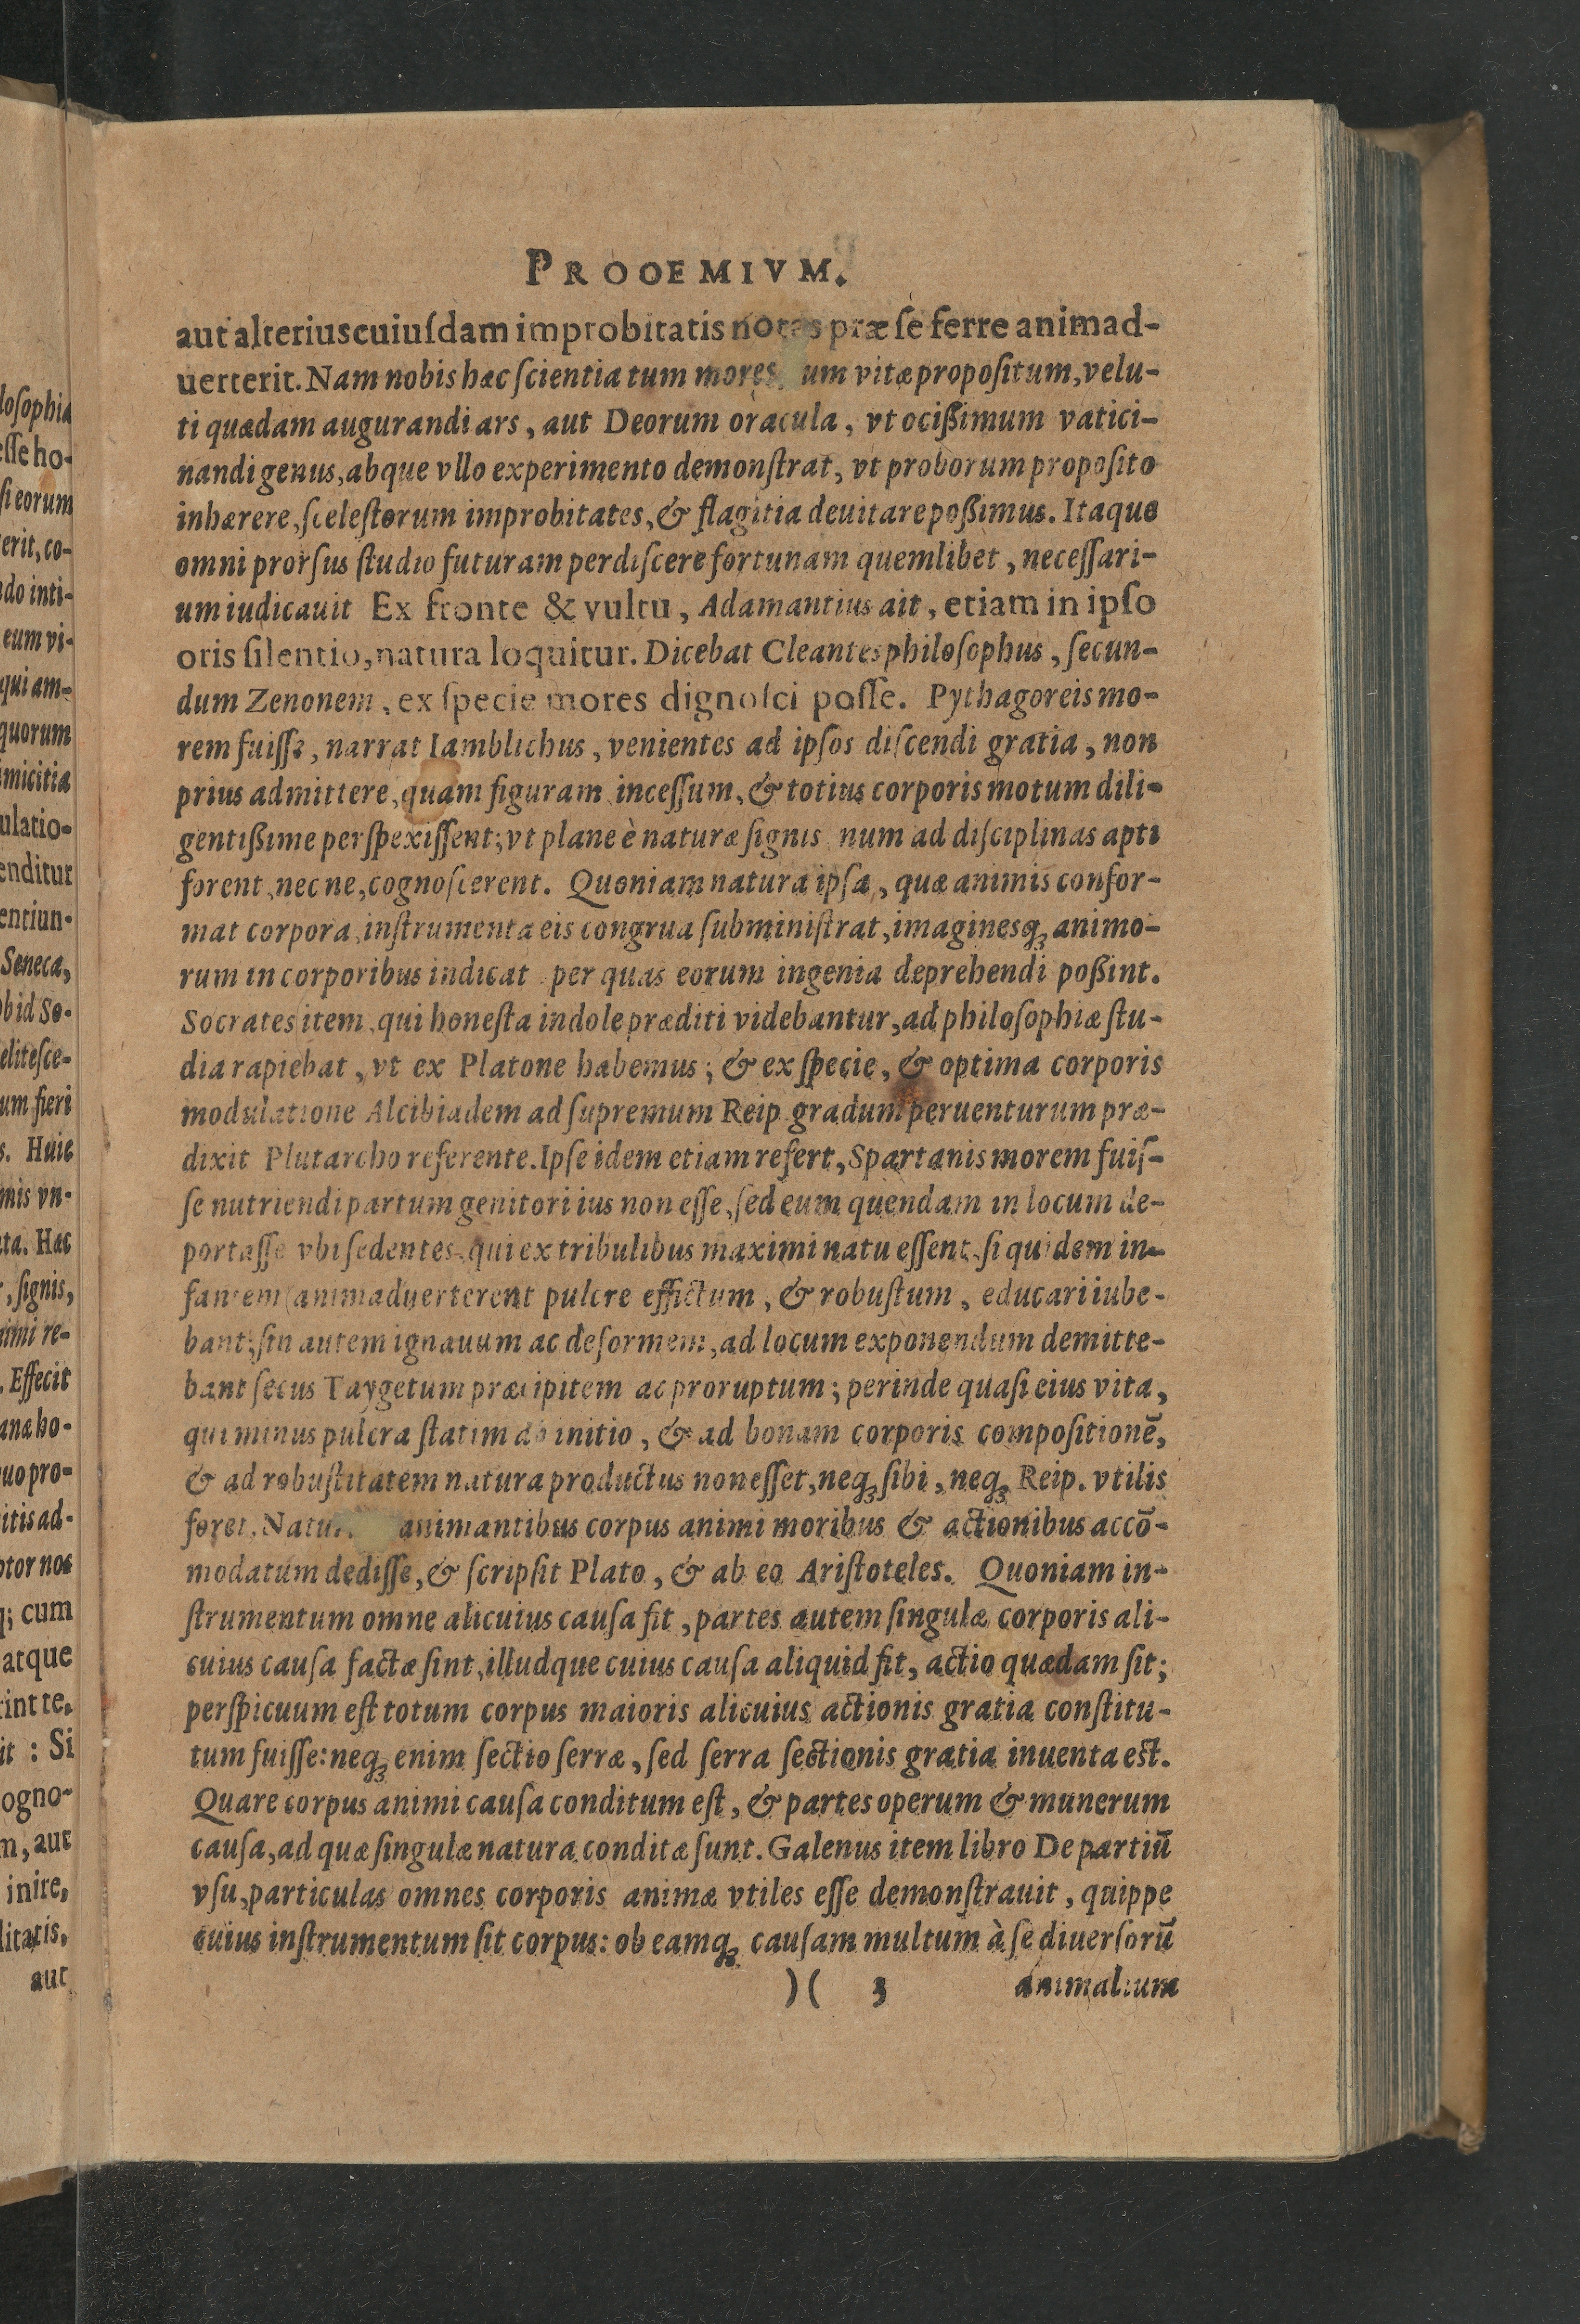 PROOEMIVM.
aut alterius cuiuſdam improbitatis notas præ ſe ferre animad-
uerterit. Nam nobis hæc ſcientia tum mores, um vitæ propoſitum, velu-
ti quædam augurandi ars, aut Deorum oracula, vt ocißimum vatici-
nandi genus, abque vllo experimento demonſtrat, vt proborum propoſito
inhærere, ſceleſtorum improbitates, & flagitia deuitare poßimus. Itaque
omni prorſus ſtudio futuram perdiſcere fortunam quemlibet, neceſſari-
um iudicauit Ex fronte & vultu, Adamantius ait, etiam in ipſo
oris ſilentio, natura loquitur. Dicebat Cleantes philoſophus, ſecun-
dum Zenonem, ex ſpecie mores dignoſci poſſe. Pythagoreis mo-
rem fuiſſe, narrat Iamblichus, venientes ad ipſos diſcendi gratia, non
prius admittere, quam figuram inceſſum, & totius corporis motum dili-
gentißime perſpexiſſent; vt plane è naturæ ſignis num ad diſciplinas apti
forent, nec ne, cognoſcerent. Quoniam natura ipſa, quæ animis confor-
mat corpora, inſtrumenta eis congrua ſubminiſtrat, imaginesq; animo-
rum in corporibus indicat per quas eorum ingenia deprehendi poßint.
Socrates item, qui honeſta indole præditi videbantur, ad philoſophiæ ſtu-
dia rapiebat, vt ex Platone habemus; & ex ſpecie, & optima corporis
modulatione Alcibiadem ad ſupremum Reip. gradum peruenturum præ-
dixit Plutarcho referente. Ipſe idem etiam refert, Spartanis morem fuiſ-
ſe nutriendi partum genitori ius non eſſe, ſed eum quendam in locum de-
portaſſe vbi ſedentes qui ex tribulibus maximi natu eſſent, ſi quidem in-
fantem animaduerterent pulcre effictum, & robuſtum, educari iube-
bant; ſin autem ignauum ac deformem, ad locum exponendum demitte-
bant ſecus Taygetum præcipitem ac proruptum; perinde quaſi eius vita,
qui minus pulcra ſtatim ab initio, & ad bonam corporis compoſitionẽ,
& ad robuſtitatem natura productus non eſſet, neq; ſibi, neq; Reip. vtilis
foret. Natur animantibus corpus animi moribus & actionibus accõ-
modatum dediſſe, & ſcripſit Plato, & ab eo Ariſtoteles. Quoniam in-
ſtrumentum omne alicuius cauſa fit, partes autem ſingulæ corporis ali-
cuius cauſa factæ ſint, illudque cuius cauſa aliquid fit, actio quædam ſit;
perſpicuum eſt totum corpus maioris alicuius actionis gratia conſtitu-
tum fuiſſe: neq; enim ſectio ſerræ, ſed ſerra ſectionis gratia inuenta eſt.
Quare corpus animi cauſa conditum eſt, & partes operum & munerum
cauſa, ad quæ ſingulæ natura conditæ ſunt. Galenus item libro De partiũ
vſu, particulas omnes corporis animæ vtiles eſſe demonſtrauit, quippe
cuius inſtrumentum ſit corpus: ob eamq; cauſam multum à ſe diuerſorũ
)( 3 animalium